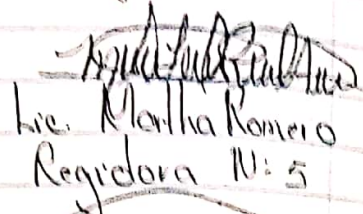 Lic. Martha Romero
Regidora N: 5